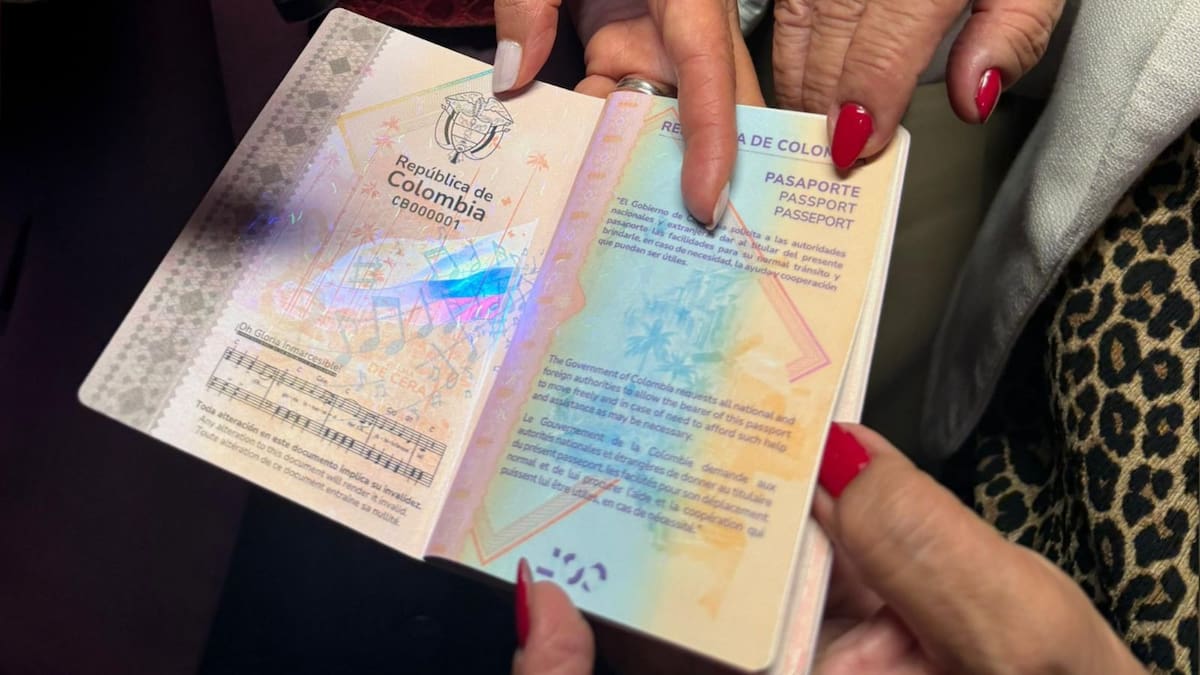 República de
Colombia
CB000001
¡Oh Gloria Inmarcesible!
Toda alteración en este documento implica su invalidez.
Any alteration to this document will render it invalid.
Toute altération de ce document entraîne sa nullité.
DE COLOM
PASAPORTE
PASSPORT
PASSEPORT
"El Gobierno de solicita a las autoridades
nacionales y dar al titular del presente
pasaporte las facilidades para su normal tránsito y
brindarle, en caso de necesidad, la ayuda y cooperación
que puedan ser útiles.
The Government of Colombia requests all national and
foreign authorities to allow the bearer of this passport
to move freely and in case of need to afford such help
and assistance as may be necessary.
Le Gouvernement de la Colombie demande aux
autorités nationales et étrangères de donner au titulaire
du présent passeport, les facilités pour son déplacement
normal et de lui procurer l'aide et la coopération qui
puissent lui être utiles, en cas de nécessité."